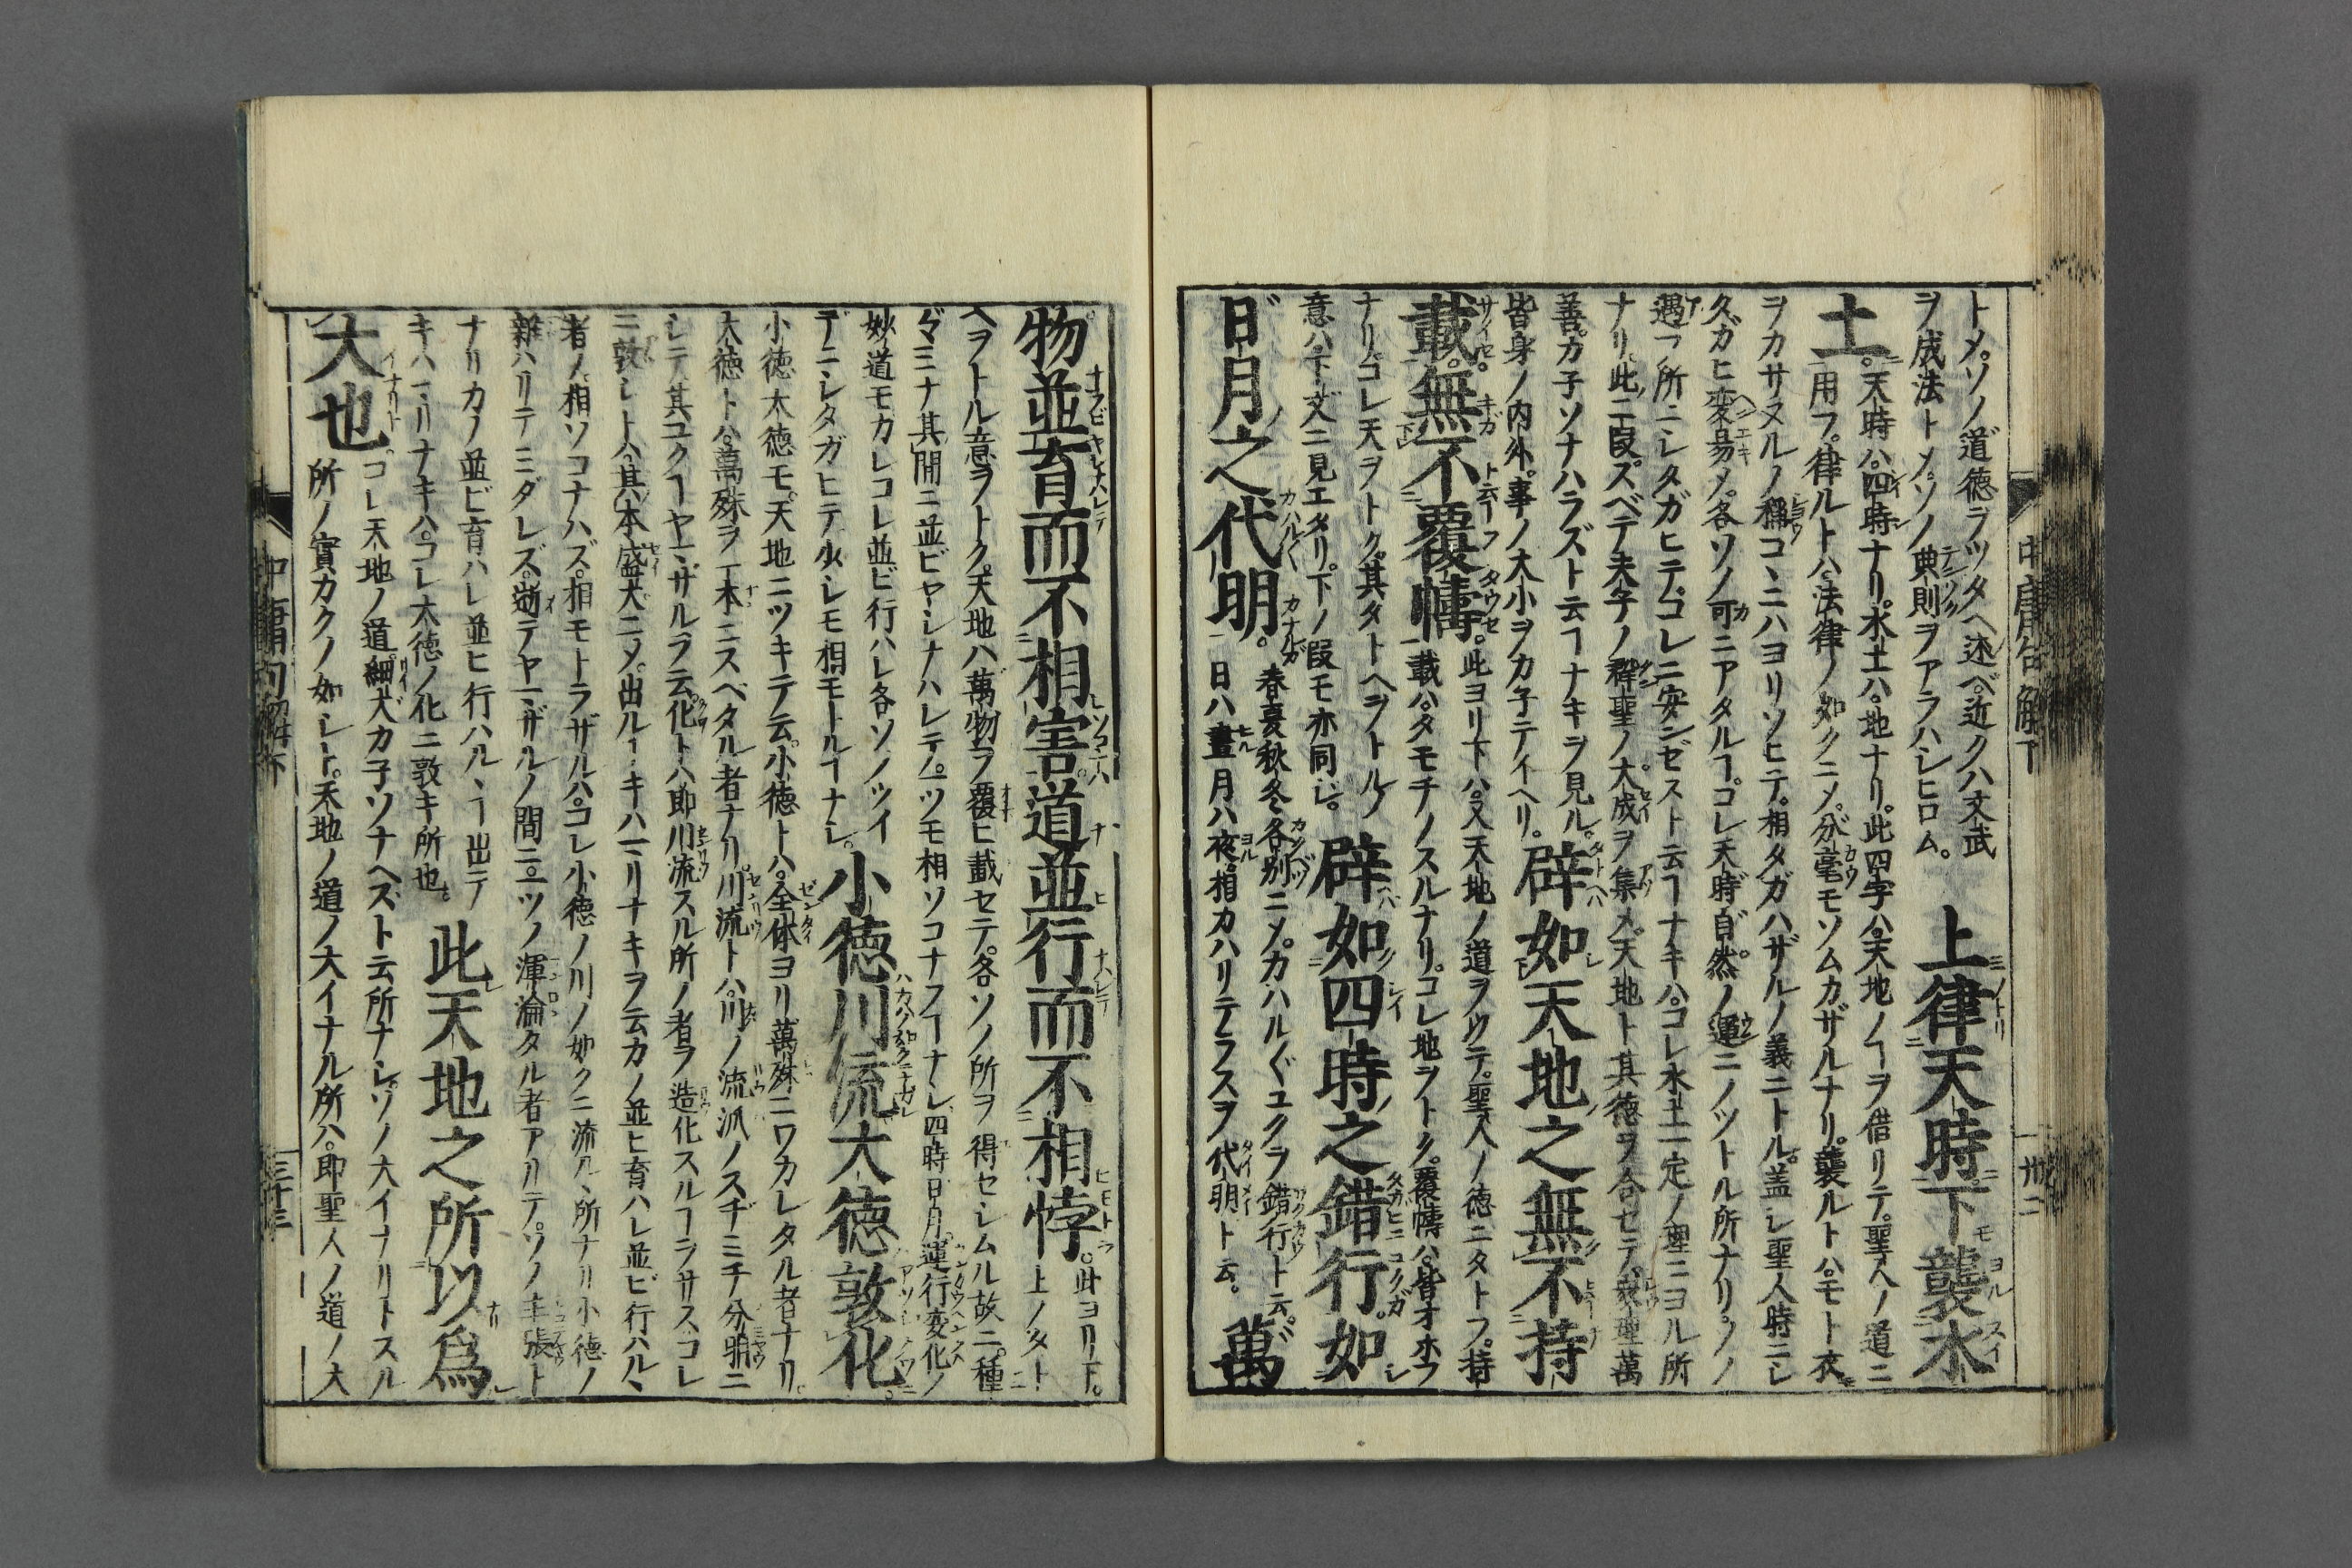 中庸句解下
卅二
トメ。ソノ道徳ヲツタヘ述ベ。近クハ文武
ヲ成法トメ。ソノ典則ヲアラハシヒロム。上律天時下襲水
土。天時ハ。四時ナリ。水土ハ。地ナリ。此四字ハ。天地ノヿヲ借リテ。聖人ノ道ニ
用フ。律ルトハ。法律ノ如クニメ。分毫モソムカザルナリ。襲ルトハ。モト衣
ヲカサヌルノ稱。コヽニハヨリソヒテ。相タガハザルノ義ニトル。蓋シ聖人時ニシ
タガヒ変易メ。各ソノ可ニアタルヿ。コレ天時自然ノ運ニノツトル所ナリ。ソノ
遇フ所ニシタガヒテ。コレニ安ンゼスト云ヿナキハ。コレ水土一定ノ理ニヨル所
ナリ。此二段。スベテ夫子ノ群聖ノ大成ヲ集メ。天地ト其徳ヲ合セテ。衆理萬
善。カ子ソナハラズト云ヿナキヲ見ル。辟如天地之無不持
皆身ノ内外。事ノ大小ヲカ子テイヘリ。
載。無不覆幬。此ヨリ下ハ。又天地ノ道ヲ以テ。聖人ノ徳ニタトフ。持
載ハ。タモチノスルナリ。コレ地ヲトク。覆幬ハ。皆オホフ
ナリ。コレ天ヲトク。其タトヘヲトルノ
意ハ。下文ニ見エタリ。下ノ段モ亦同シ。辟如四時之錯行。如
日月之代明。春夏秋冬。各別ニメ。カハル〴〵ユクヲ錯行ト云。
日ハ晝。月ハ夜。相カハリテラスヲ代明ト云。萬
物並育而不相害。道並行而不相悖。此ヨリ下。
上ノタト
ヘヲトル意ヲトク。天地ハ萬物ヲ覆ヒ載セテ。各ソノ所ヲ得セシムル故ニ。種
〻ミナ其間ニ並ビヤシナハレテ。一ツモ相ソコナフヿナシ。四時日月。運行変化ノ
妙道モカレコレ並ビ行ハレ各ソノツイ
デニシタガヒテ少シモ相モトルヿナシ。小徳川流。大徳敦化。
小徳大徳モ。天地ニツキテ云。小徳トハ。全体ヨリ萬殊ニワカレタル者ナリ。
大徳トハ。萬殊ヲ一本ニスベタル者ナリ。川流トハ。川ノ流派ノスヂミチ分明ニ
シテ其ユクヿヤマザルヲ云。化トハ即川流スル所ノ者ヲ造化スルヿヲサス。コレ
ニ敦シトハ。其本盛大ニメ。出ルヿキハマリナキヲ云。カノ並ヒ育ハレ並ビ行ハルヽ
者ノ。相ソコナハズ。相モトラザルハ。コレ小徳ノ川ノ如クニ流ルヽ所ナリ。小徳ノ
雜ハリテミダレズ。逝テヤマザルノ間ニ。一ツノ渾淪タル者アリテ。ソノ主張ト
ナリ。カノ並ビ育ハレ並ヒ行ハルヽヿ出テ
キハマリナキハ。コレ大徳ノ化ニ敦キ所也。此天地之所以為
大也。コレ天地ノ道。細大カ子ソナヘズト云所ナシ。ソノ大イナリトスル
所ノ實。カクノ如シト。天地ノ道ノ大イナル所ハ。即聖人ノ道ノ大
中庸句解下
三十三